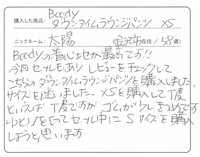 購入した商品: Boody
ダウンタイムラウンジパンツ XS
ニックネーム: 太陽 金沢市在住 / 58歳
Boodyの着心地が最高です!!
今回セールもあり レビューをチェックして
こちらのダウンタイムラウンジパンツを購入しました。
サイズを迷いました。XSを購入して丁度
といえば丁度ですが ゴムが少しきつめです
ゆとりをとってセール中に Sサイズを購入
しようと思います